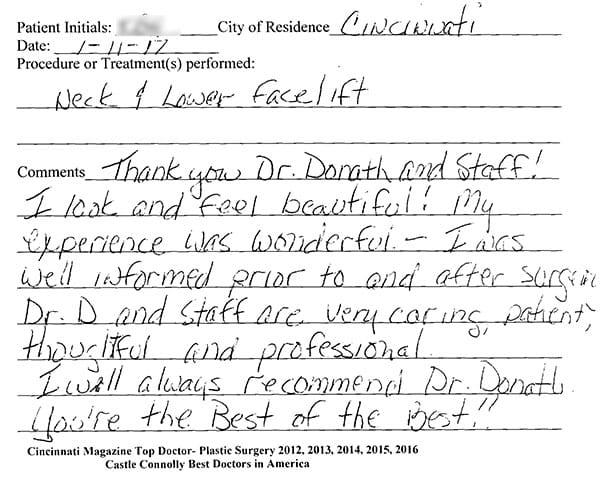 Patient Initials: City of Residence Cincinnati
Date: 1-11-17
Procedure or Treatment(s) performed:
Neck & Lower Facelift
Comments Thank you Dr. Donath and Staff!
I look and feel beautiful! My
experience was wonderful - I was
well informed prior to and after surgery
Dr. D and Staff are very caring, patient,
thoughtful and professional.
I will always recommend Dr. Donath.
You're the Best of the Best!!
Cincinnati Magazine Top Doctor- Plastic Surgery 2012, 2013, 2014, 2015, 2016
Castle Connolly Best Doctors in America